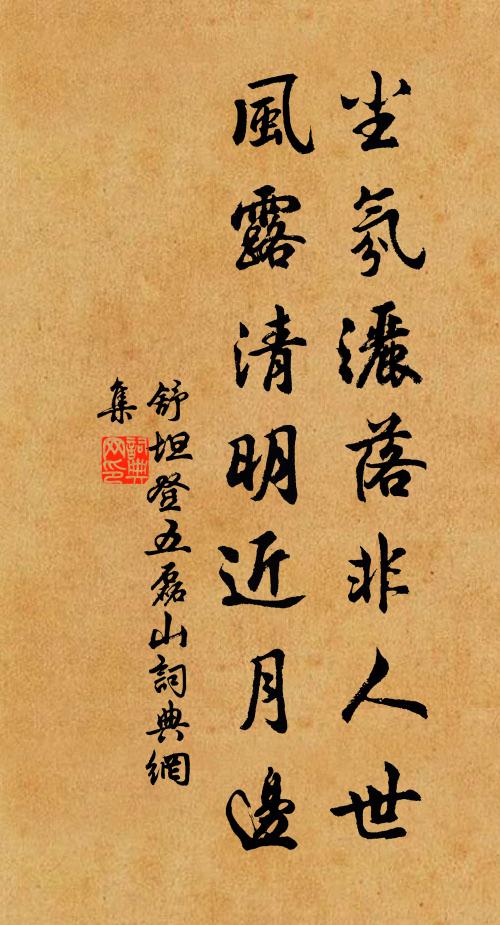 尘氛灑落非人世
風露清明近月邊
舒坦登五磊山詞典網
集
詞典
网印